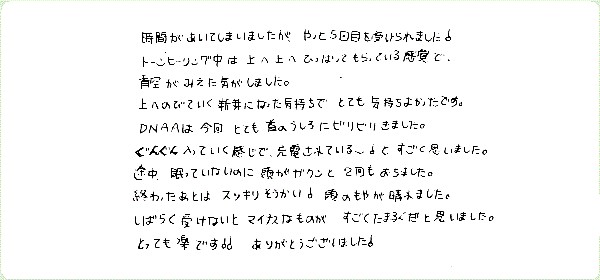 時間があいてしまいましたが、やっと5回目を受けられました♪
トーンヒーリング中は上へ上へひっぱってもらっている感覚で、
青空がみえた気がしました。
上へのびていく新芽になった気持ちで とても気持ちよかったです。
DNAAは今回 とても首のうしろにビリビリきました。
ぐんぐん入っていく感じで、充電されている〜♪と すごく思いました。
途中、眠っていないのに 頭がガクンと 2回もおちました。
終わったあとは スッキリそうかい♪ 頭のもやが晴れました。
しばらく受けないと マイナスなものが すごくたまるくだと思いました。
とっても楽です♪♪ ありがとうございました♪